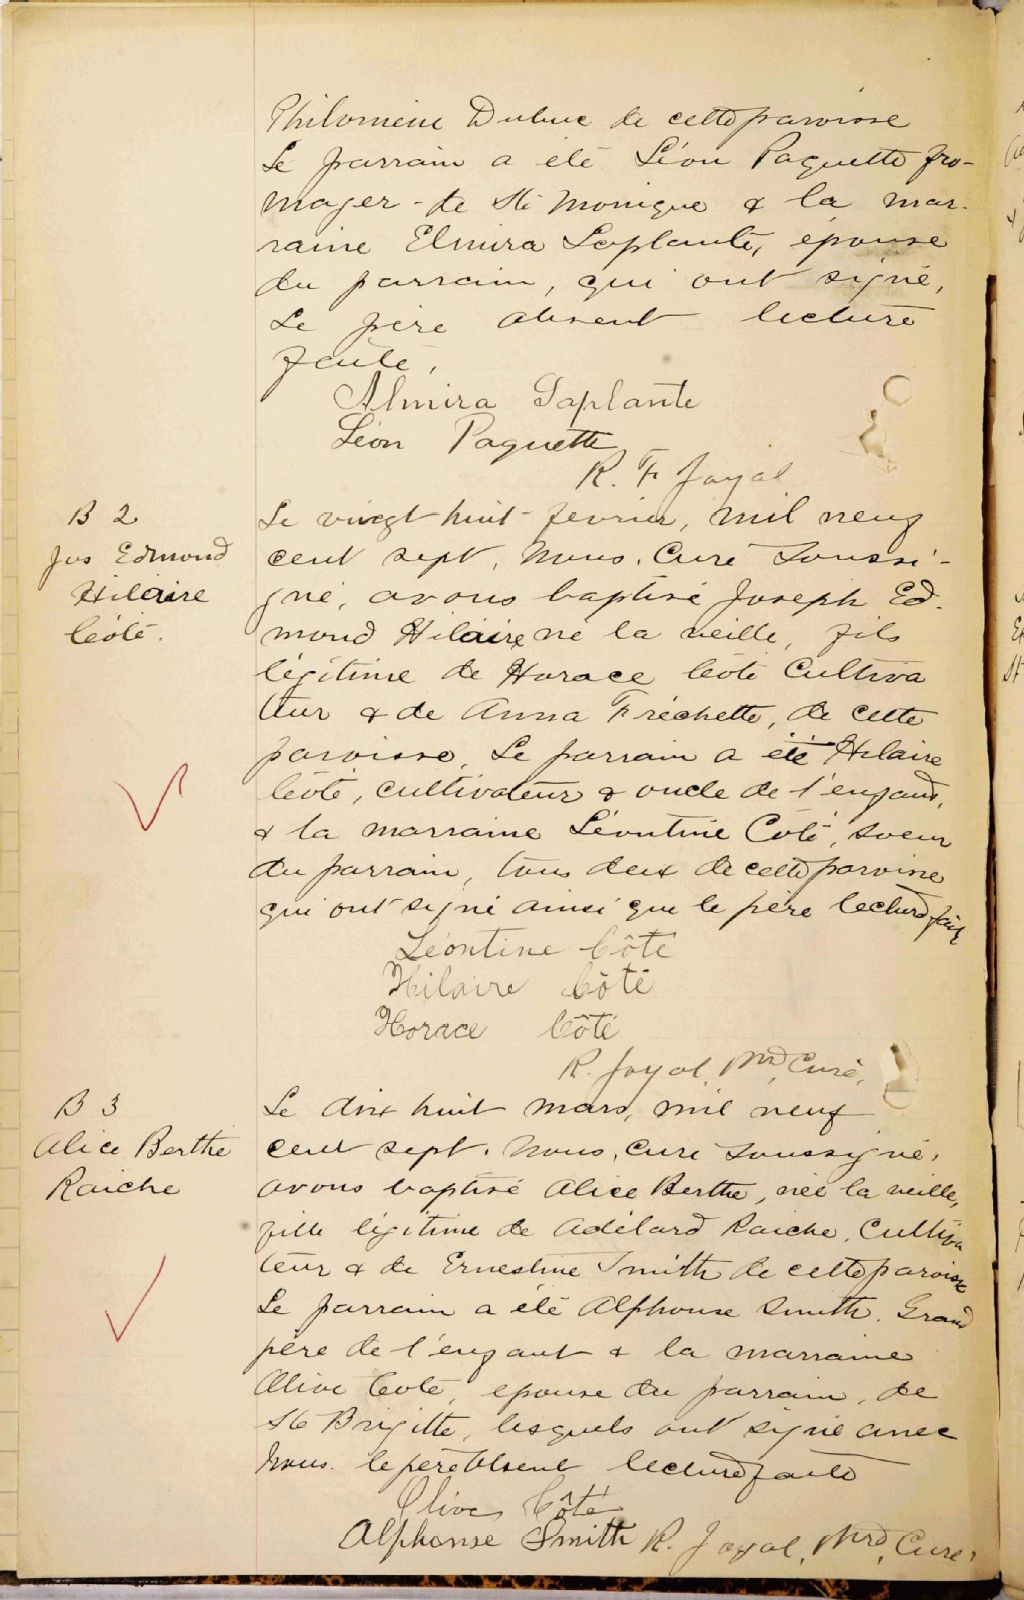 Philomène Dubuc de cette paroisse
Le parrain a été Léon Paquette fro-
mager - de Ste Monique & la mar-
raine Elmira Laplante, épouse
du parrain, qui ont signé,
Le père absent lecture
faite,
Almira Laplante
Léon Paquette
R. F. Joyal
B 2
Jos Edmond
Hilaire
Côté.
Le vingt huit fevrier, mil neuf
cent sept, Nous, Curé soussi-
gné, avons baptisé Joseph Ed-
mond Hilaire né la veille, fils
légitime de Horace Côté Cultiva
teur & de Anna Fréchette, de cette
paroisse, Le parrain a été Hilaire
Côté, cultivateur & oncle de l'enfant,
& la marraine Léontine Coté, soeur
du parrain, tous deux de cette paroisse
qui ont signé ainsi que le père lecture faite
Léontine Côté
Hilaire Côté
Horace Côté
R. Joyal, Curé,
B 3
Alice Berthe
Raiche
Le dix huit mars, mil neuf
cent sept. Nous, Curé soussigné,
avons baptisé Alice Berthe, née la veille,
fille légitime de Adélard Raiche, Cultiva
teur & de Ernestine Smith de cette paroisse
Le parrain a été Alphonse Smith. Grand
père de l'enfant & la marraine
Olive Coté, epouse du parrain, de
Ste Brigitte, lesquels ont signé avec
Nous. le père absent lecture faite
Olive Côté
Alphonse Smith R. Joyal, Curé,